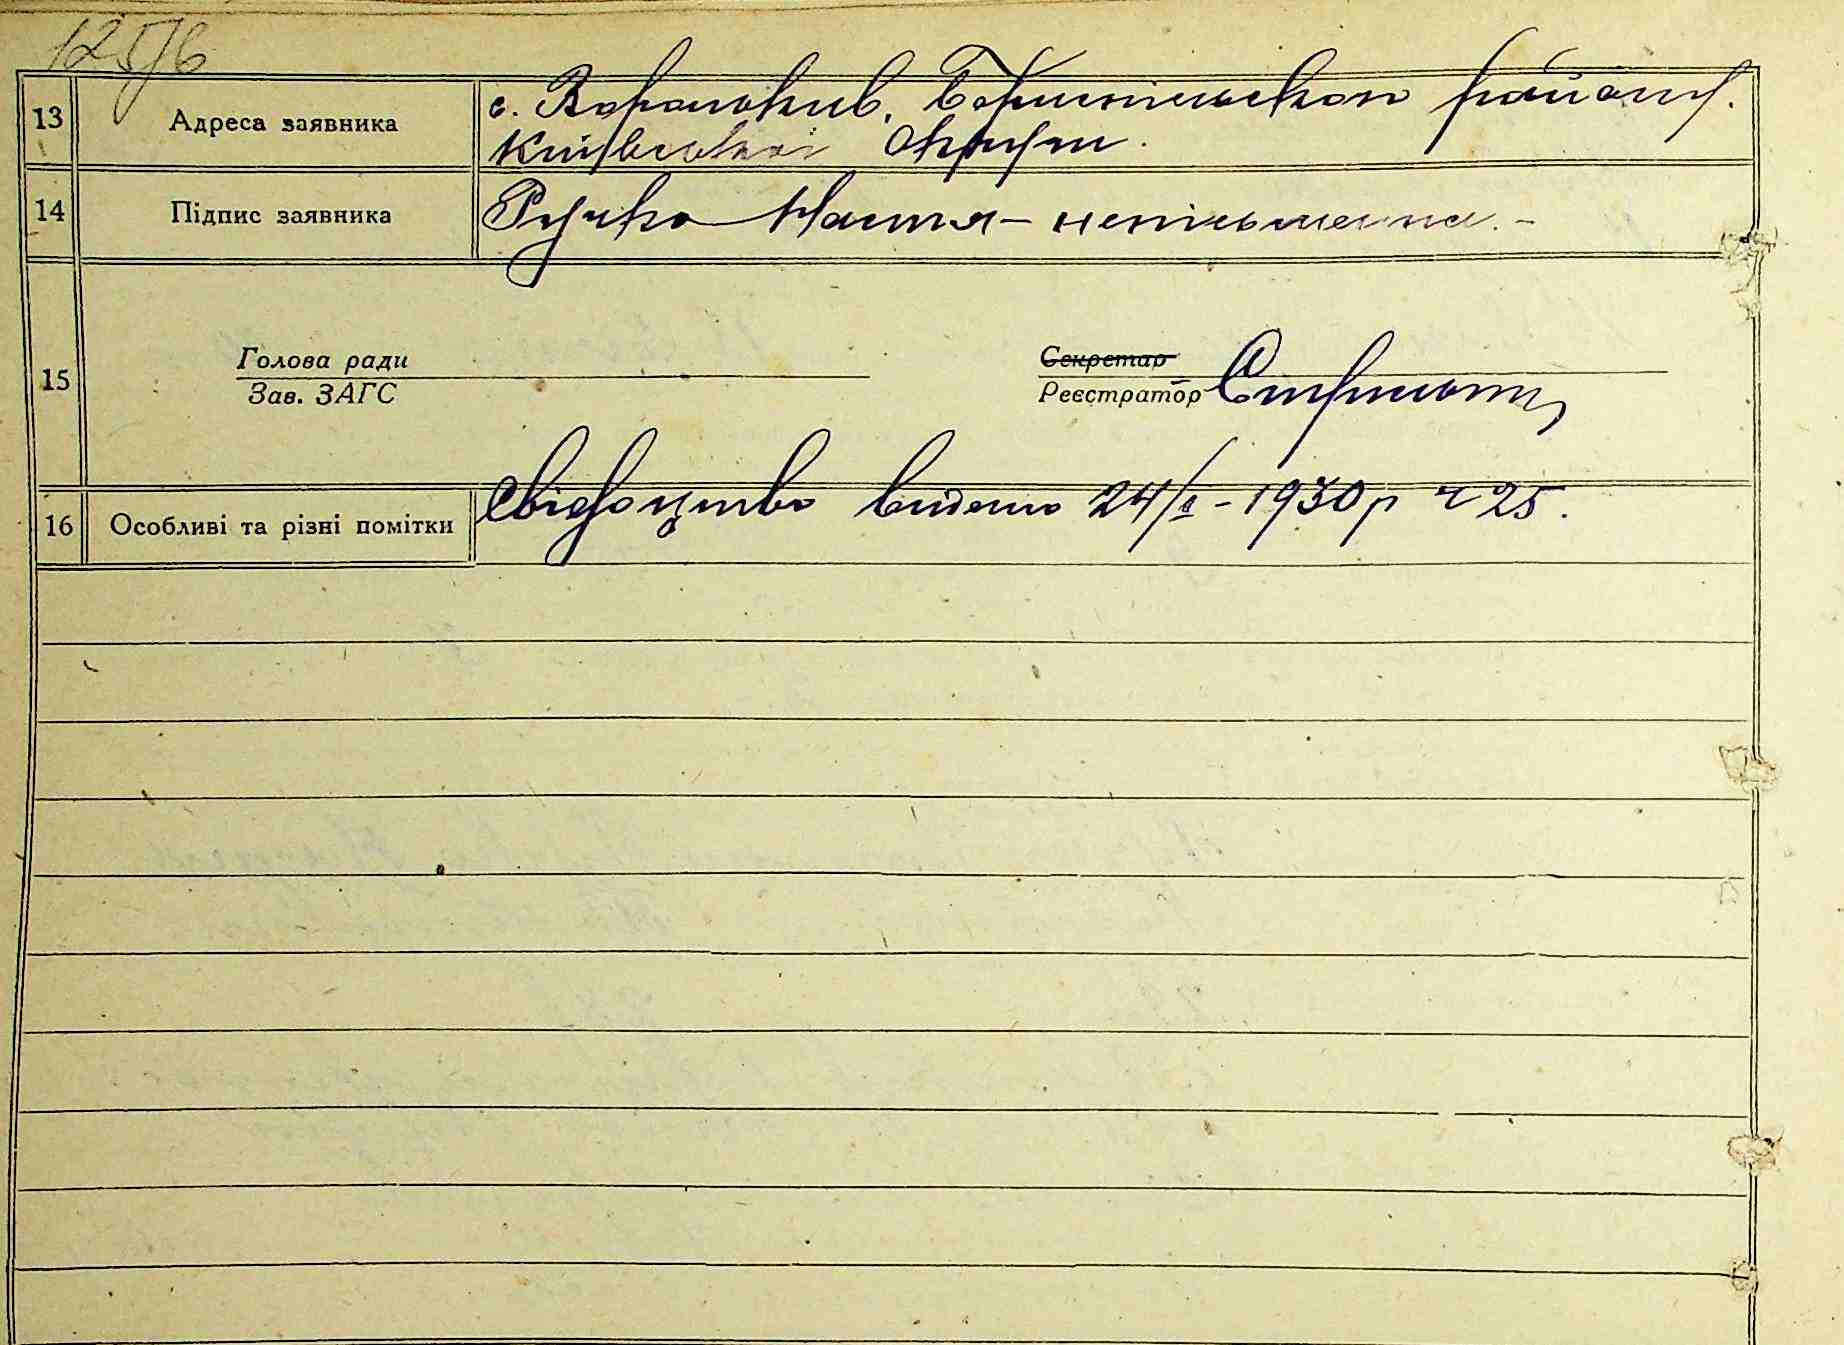 125/6
13 Адреса заявника с. Вороньків, Бориспільського району.
Київської Округи.
14 Підпис заявника Ручко Настя – неписьменна. –
15 Голова ради
Зав. ЗАГС
Секретар
Реєстратор
16 Особливі та різні помітки Свідоцтво видано 24/I – 1930 р ч 25.